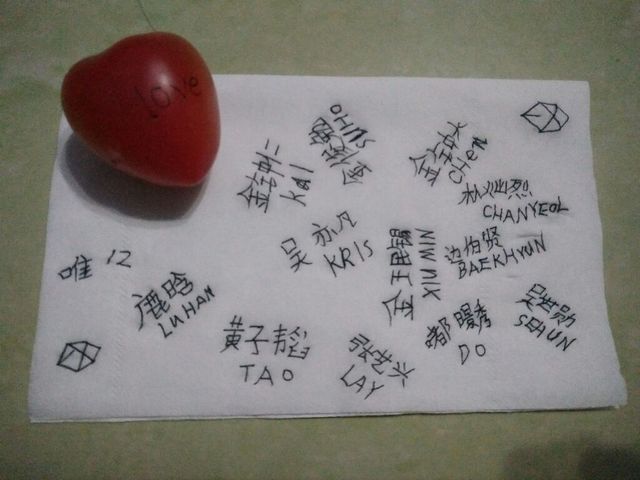 love
金俊勉
SUHO
金钟大
CHEN
金钟仁
KAI
朴灿烈
CHANYEOL
吴亦凡
KRIS
金珉锡
XIUMIN
边伯贤
BAEKHYUN
唯 12
鹿晗
LUHAN
黄子韬
TAO
张艺兴
LAY
都暻秀
DO
吴世勋
SEHUN